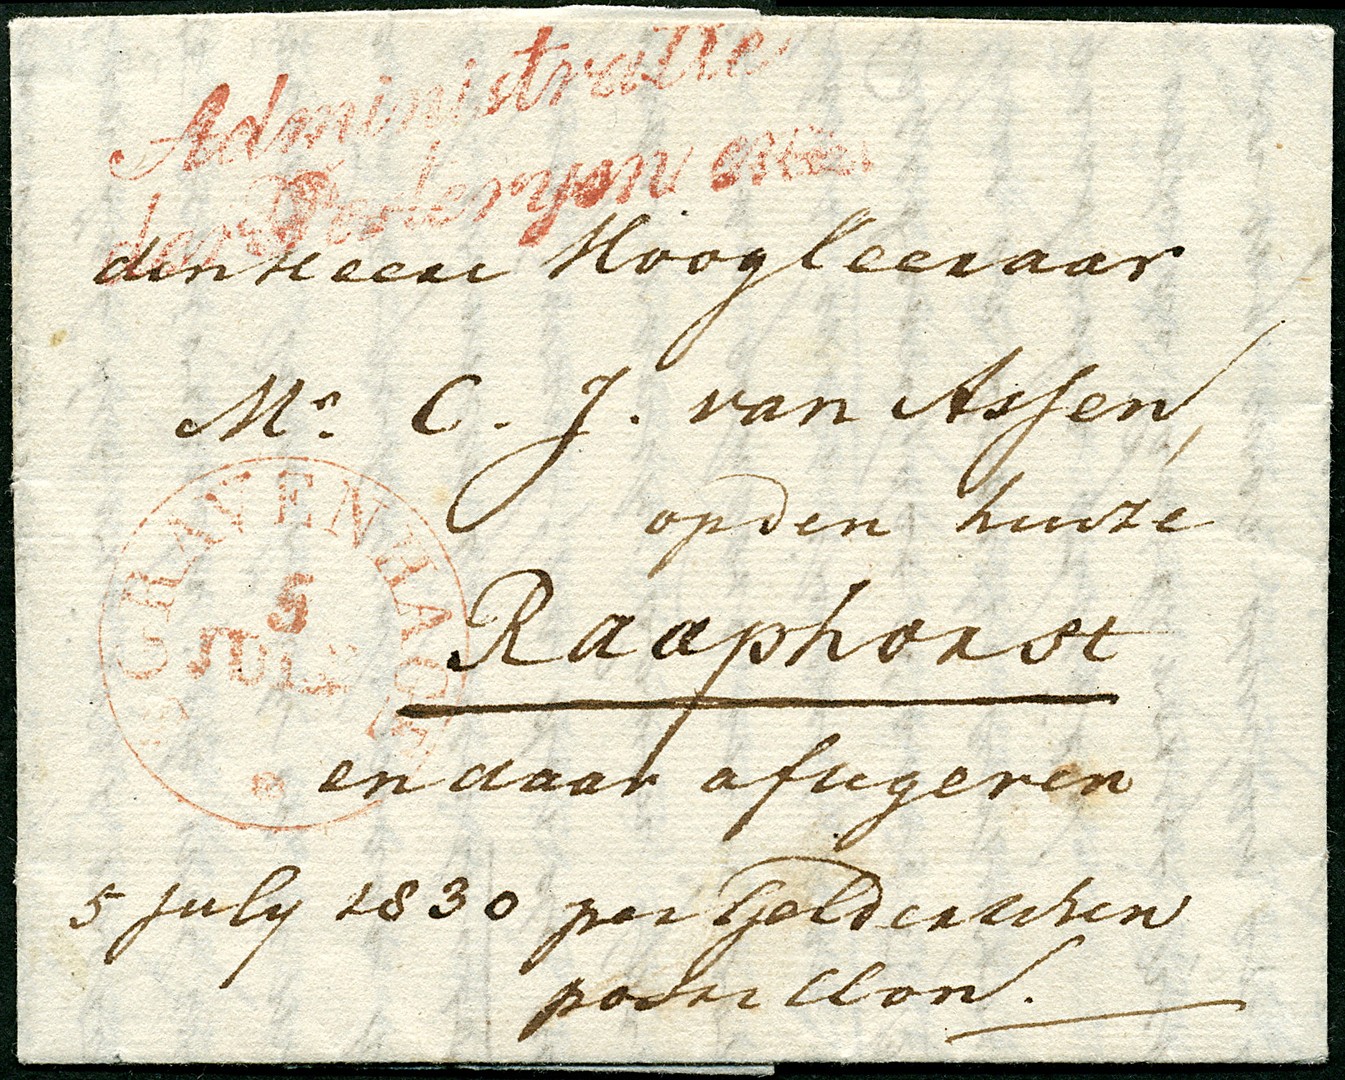 Administratie
der Posteryen enz.
den Heere Hoogleeraar
Mr. C. J. van Assen,
op den huize
Raaphorst
en daar aftegeven
5 july 1830 per Gelderschen
postillon.
'S GRAVENHAGE
5
JULY